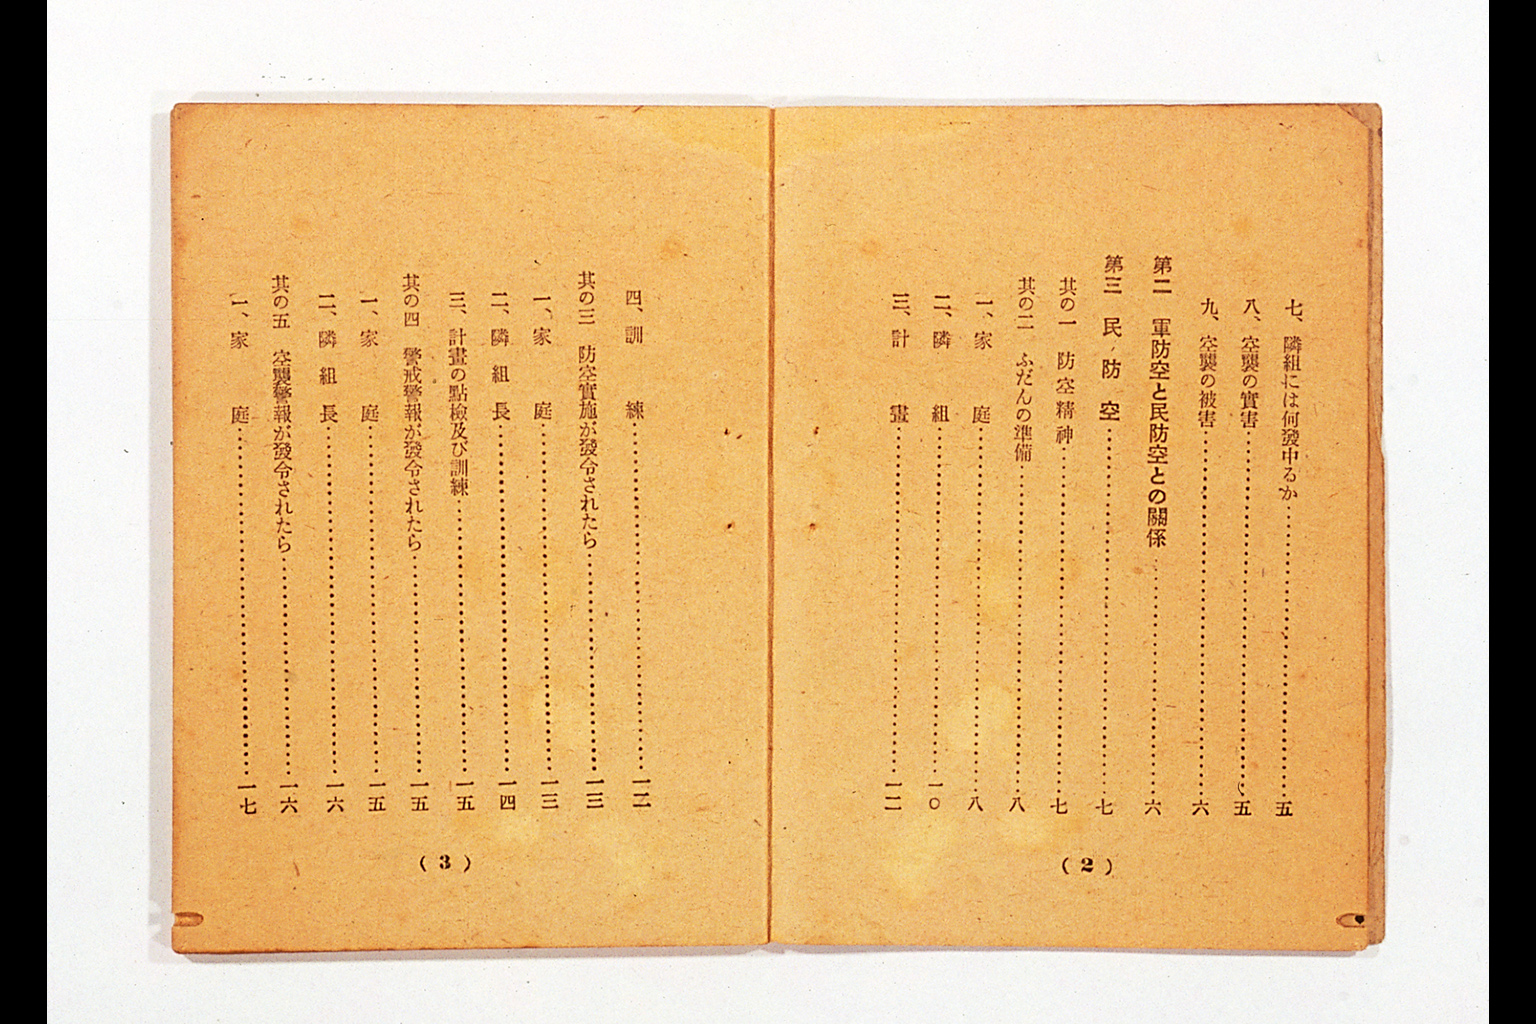 七、隣組には何發中るか……五
八、空襲の實害……五
九、空襲の被害……六
第二 軍防空と民防空との關係……六
第三 民防空……七
其の一 防空精神……七
其の二 ふだんの準備……八
一、家庭……八
二、隣組……一〇
三、計畫……一二
(2)
四、訓練……一二
其の三 防空實施が發令されたら……一三
一、家庭……一三
二、隣組長……一四
三、計畫の點檢及び訓練……一五
其の四 警戒警報が發令されたら……一五
一、家庭……一五
二、隣組長……一六
其の五 空襲警報が發令されたら……一六
一、家庭……一七
(3)